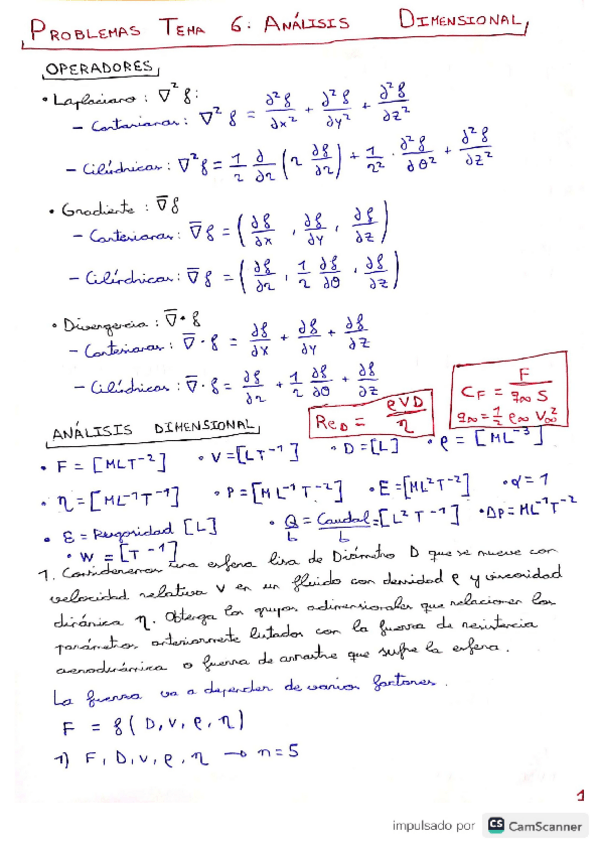 PROBLEMAS TEMA 6: ANÁLISIS DIMENSIONAL
OPERADORES
• Laplaciano: ∇² f:
– Cartesianas: ∇² f = ∂²f/∂x² + ∂²f/∂y² + ∂²f/∂z²
– Cilíndricas: ∇² f = 1/r ∂/∂r (r ∂f/∂r) + 1/r² · ∂²f/∂θ² + ∂²f/∂z²
• Gradiente: ∇̄ f
– Cartesianas: ∇̄ f = (∂f/∂x, ∂f/∂y, ∂f/∂z)
– Cilíndricas: ∇̄ f = (∂f/∂r, 1/r ∂f/∂θ, ∂f/∂z)
• Divergencia: ∇̄ · f
– Cartesianas: ∇̄ · f = ∂f/∂x + ∂f/∂y + ∂f/∂z
– Cilíndricas: ∇̄ · f = ∂f/∂r + 1/r ∂f/∂θ + ∂f/∂z
Re_D = ρVD/η
C_F = F/(q∞ S)
q∞ = 1/2 ρ∞ V∞²
ANÁLISIS DIMENSIONAL
• F = [MLT⁻²] • V = [LT⁻¹] • D = [L] • ρ = [ML⁻³]
• η = [ML⁻¹T⁻¹] • P = [ML⁻¹T⁻²] • E = [ML²T⁻²] • α = 1
• ε = Rugosidad [L] • Q/b = Caudal/b = [L²T⁻¹] • ΔP = ML⁻¹T⁻²
• W = [T⁻¹]
1. Consideremos una esfera lisa de Diámetro D que se mueve con
velocidad relativa V en un fluido con densidad ρ y viscosidad
dinánica η. Obtenga los grupos adimensionales que relacionen los
parámetros anteriormente listados con la fuerza de resistencia
aerodinámica o fuerza de arrastre que sufre la esfera.
La fuerza va a depender de varios factores.
F = f(D, V, ρ, η)
1) F, D, V, ρ, η → n = 5
1
impulsado por CS CamScanner